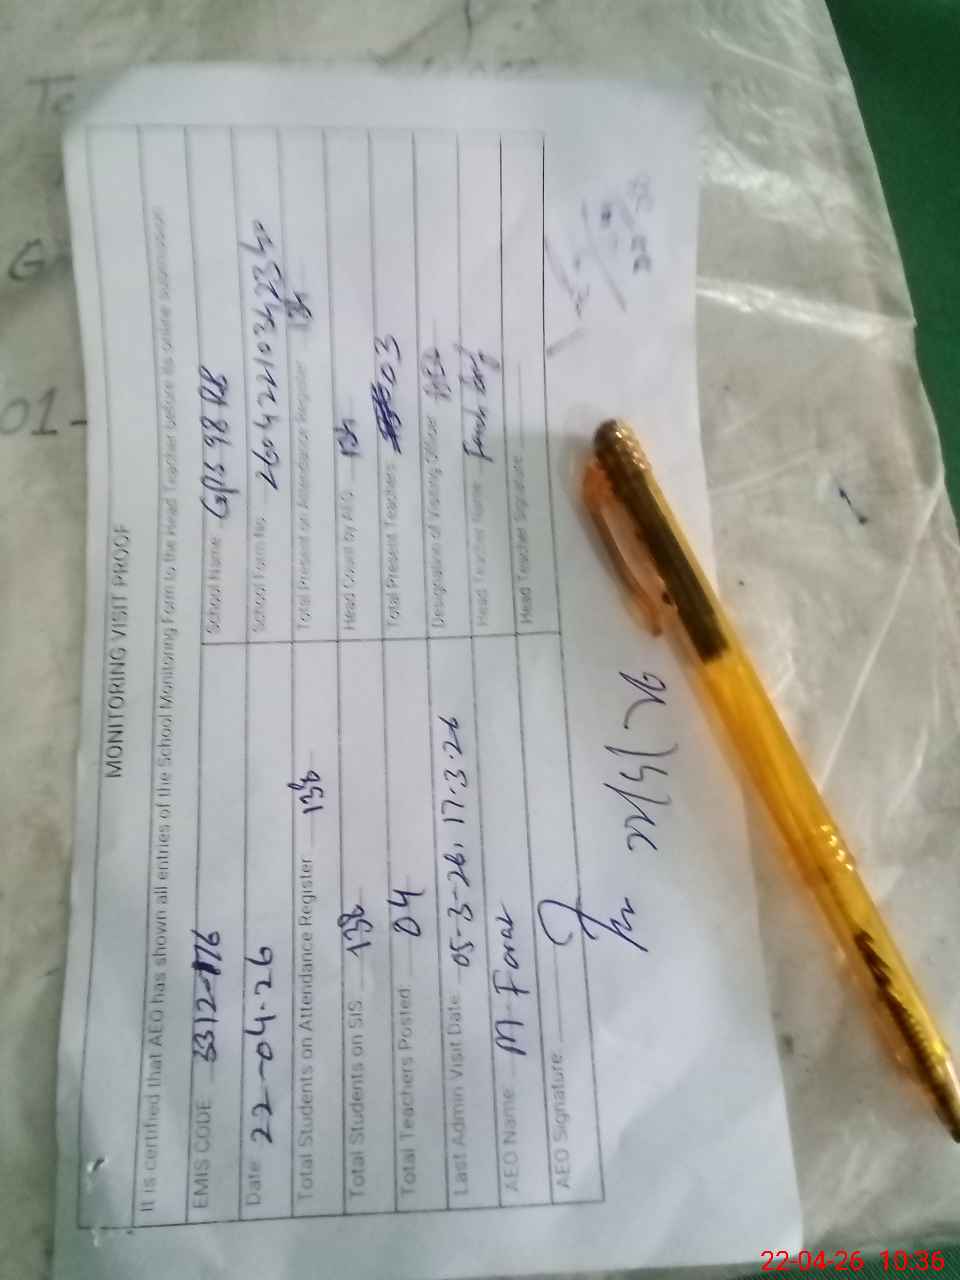 MONITORING VISIT PROOF
It is certified that AEO has shown all entries of the School Monitoring Form to the Head Teacher before its online submission
EMIS CODE School Name GPS 98 RB
Date 22-04-26 School Form No
Total Students on Attendance Register 138 Total Present on Attendance Register 134
Total Students on SIS 138 Head Count by AEO 134
Total Teachers Posted 04 Total Present Teachers 03
Last Admin Visit Date 05-3-26, 17.3.26 Designation of Visiting Officer AEO
AEO Name M. Head Teacher Name
AEO Signature Head Teacher Signature
22/4/26
01-
22-04-26 10:36